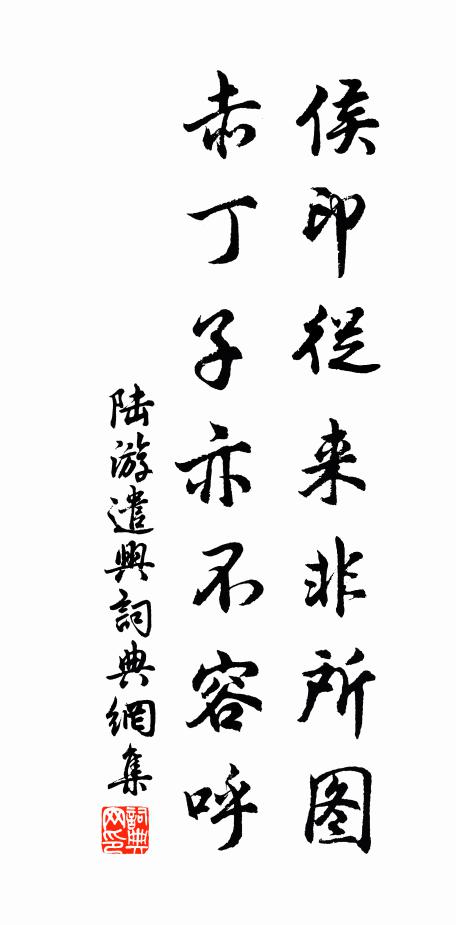 侯印從来非所图
赤丁子亦不容呼
陆游遣興詞典網集
詞典网印